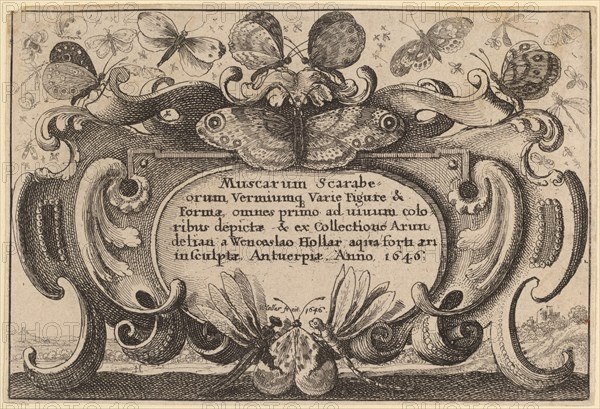 Muscarum Scarabe-
orum, Vermiumq Varie Figure &
Formæ, omnes primo ad uiuum colo
ribus depictæ & ex Collectione Arun
delian a Wenceslao Hollar aqua forti æri
insculptæ Antuerpiæ Anno, 1646.
Hollar fecit 1646